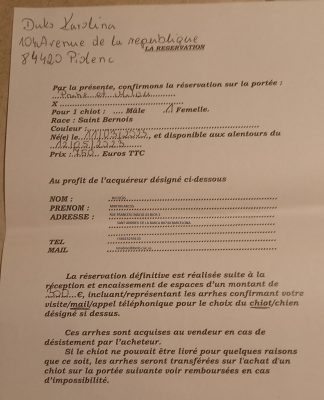 Duks Karolina
104 Avenue de la republique
LA RESERVATION
84420 Piolenc
Par la présente, confirmons la réservation sur la portée :
X
Pour 1 chiot : .... Mâle ..1 Femelle.
Race : Saint Bernois
Couleur :
Né(e) le 11/03/2023, et disponible aux alentours du
12/05/2023
Prix : 750 Euros TTC
Au profit de l'acquéreur désigné ci-dessous
NOM :
PRENOM :
ADRESSE :
TEL
MAIL
La réservation définitive est réalisée suite à la
réception et encaissement de espaces d'un montant de
500 €, incluant/représentant les arrhes confirmant votre
visite/mail/appel téléphonique pour le choix du chiot/chien
désigné si dessus.
Ces arrhes sont acquises au vendeur en cas de
désistement par l'acheteur.
Si le chiot ne pouvait être livré pour quelques raisons
que ce soit, les arrhes seront transférées sur l'achat d'un
chiot sur la portée suivante voir remboursées en cas
d'impossibilité.